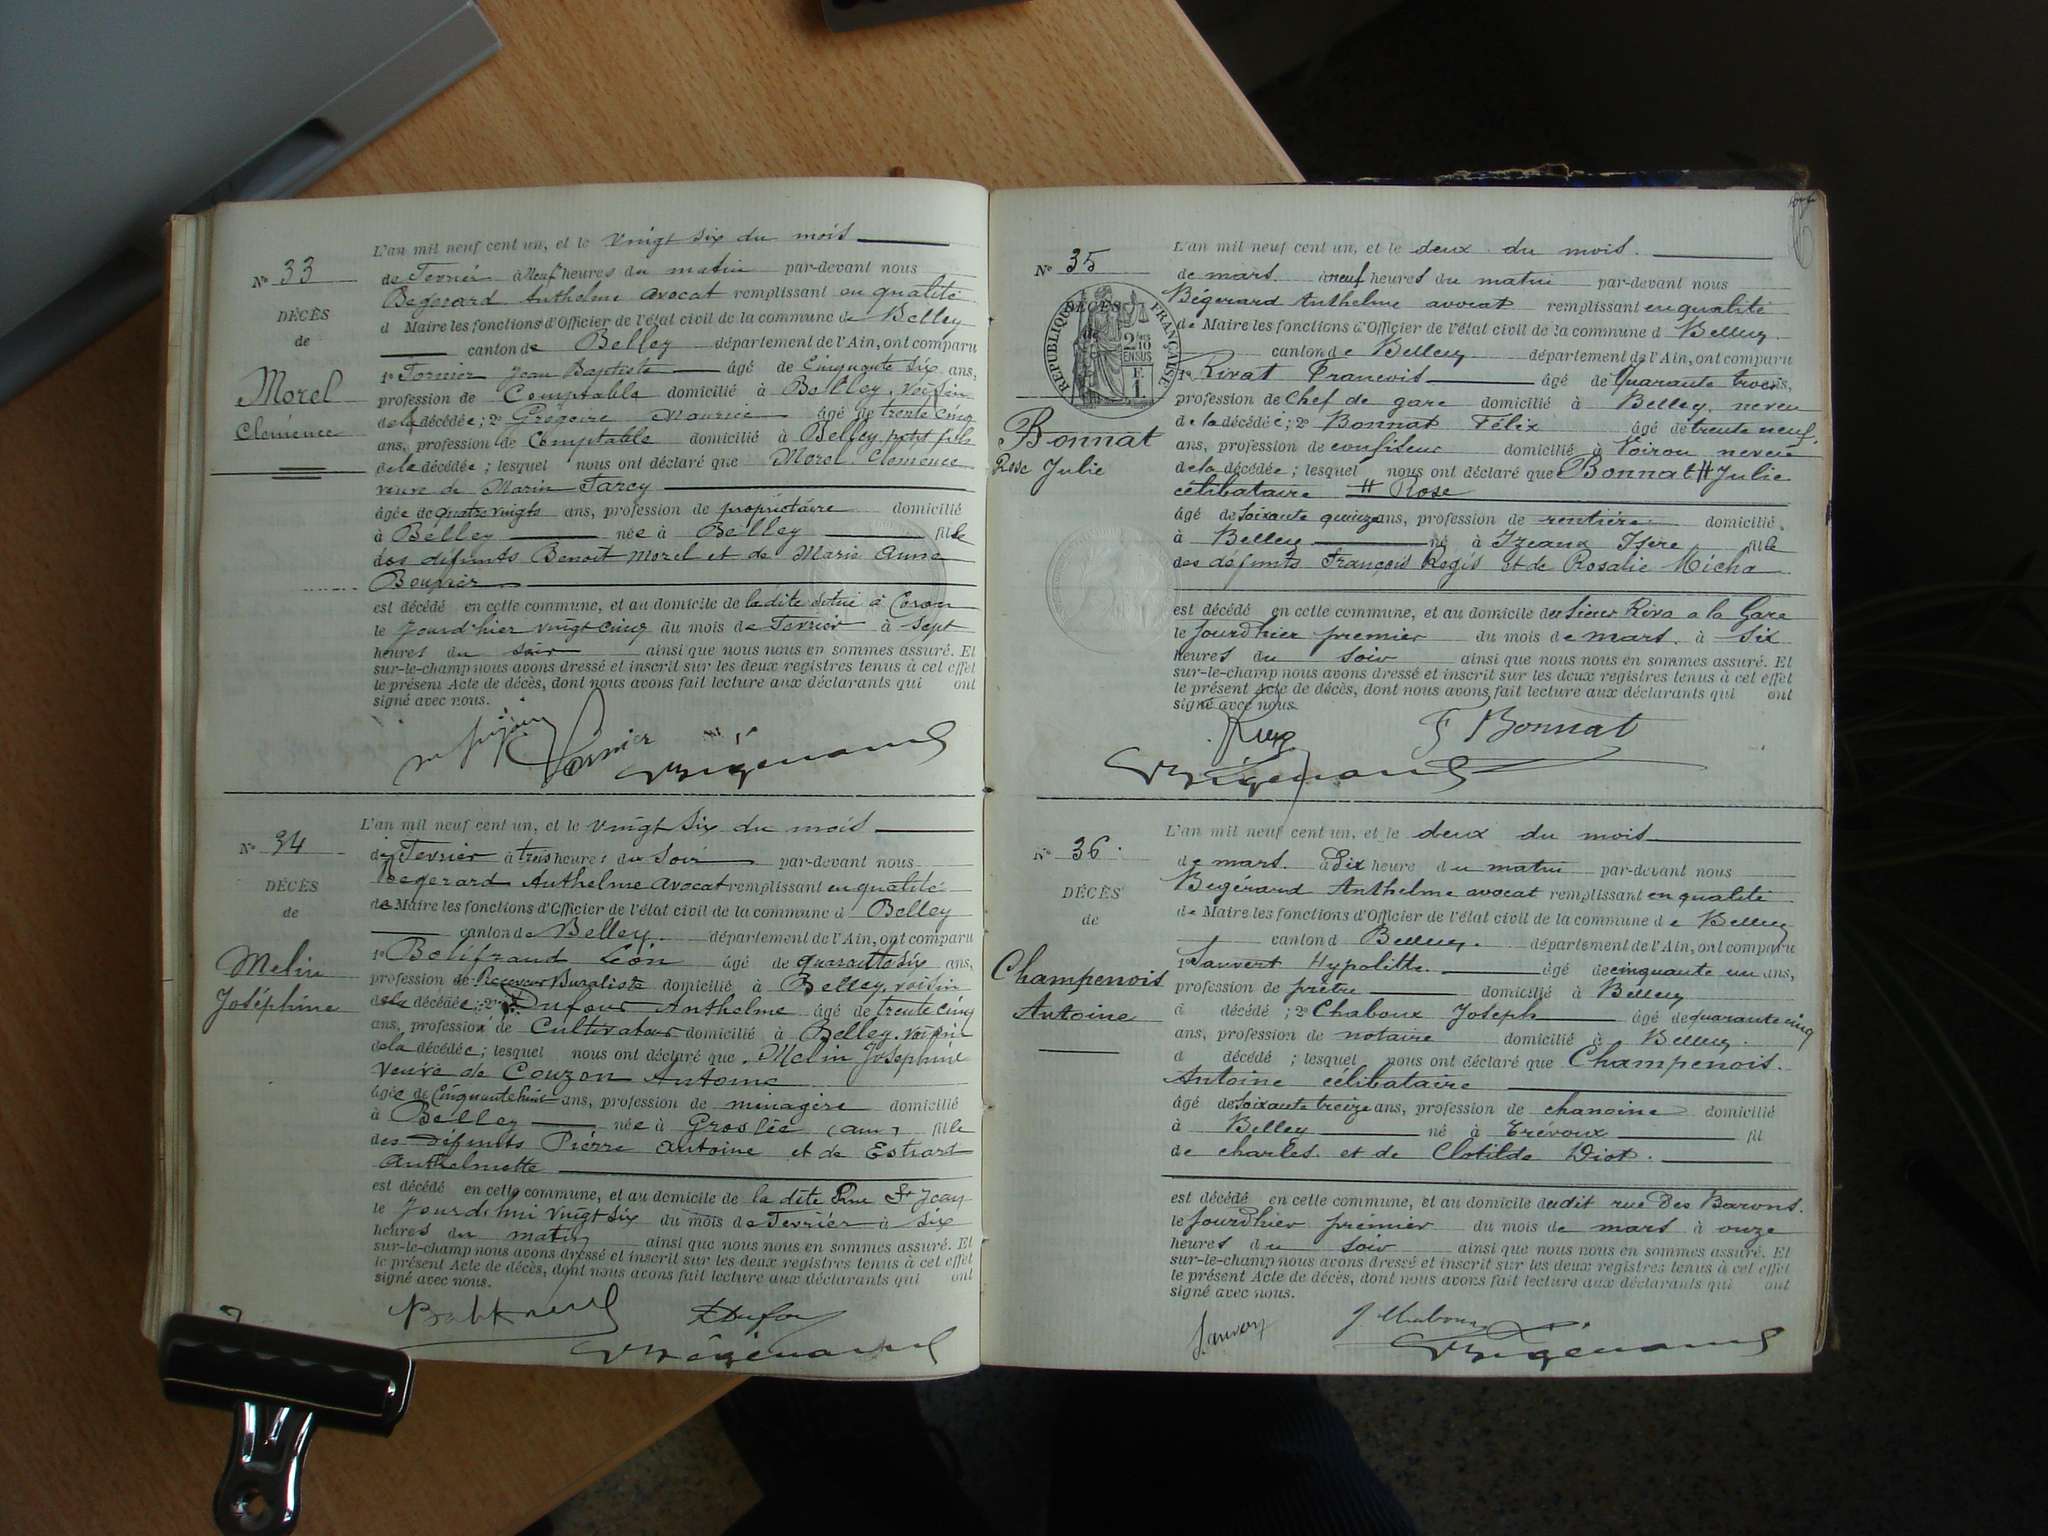 L'an mil neuf cent un, et le vingt six du mois
N° 33
de Fevrier à neuf heures du matin par-devant nous
Begerard Anthelme avocat remplissant en qualité
DÉCÈS
d Maire les fonctions d'Officier de l'état civil de la commune de Belley
de
canton de Belley département de l'Ain, ont comparu
1° Fornier Jean Baptiste âgé de Cinquante six ans,
Morel
profession de Comptable domicilié à Belley, voisin
Clémence
de la décédée; 2° Grégoire Maurice âgé de trente cinq
ans, profession de Comptable domicilié à Belley petit fils
de la décédée; lesquel nous ont déclaré que Morel Clémence
veuve de Marin Tarcy
âgée de quatre vingts ans, profession de propriétaire domicilié
à Belley née à Belley fille
des défunts Benoit Morel et de Marie Anne
Bouvier
est décédé en cette commune, et au domicile de la dite situé à Coron
le jourd'hier vingt cinq du mois de Fevrier à sept
heures du soir ainsi que nous nous en sommes assuré. Et
sur-le-champ nous avons dressé et inscrit sur les deux registres tenus à cet effet
le présent Acte de décès, dont nous avons fait lecture aux déclarants qui ont
signé avec nous.
Fornier Bégerard
L'an mil neuf cent un, et le vingt six du mois
N° 34
de Fevrier à trois heures du Soir par-devant nous
Begerard Anthelme avocat remplissant en qualité
DÉCÈS
de Maire les fonctions d'Officier de l'état civil de la commune d Belley
de
canton de Belley département de l'Ain, ont comparu
1° Léon âgé de quarante six ans,
Melin
profession de Receveur Buraliste domicilié à Belley, voisin
Joséphine
de la décédée; 2° Dufour Anthelme âgé de trente cinq
ans, profession de Cultivateur domicilié à Belley, voisin
de la décédée; lesquel nous ont déclaré que Melin Josephine
veuve de Couzon Antoine
âgée de Cinquante huit ans, profession de ménagère domicilié
à Belley née à Groslée (ain) fille
des défunts Pierre Antoine et de
Anthelmette
est décédé en cette commune, et au domicile de la dite Rue St Jean
le Jourdhui vingt six du mois de Fevrier à six
heures du matin ainsi que nous nous en sommes assuré. Et
sur-le-champ nous avons dressé et inscrit sur les deux registres tenus à cet effet
le présent Acte de décès, dont nous avons fait lecture aux déclarants qui ont
signé avec nous.
ADufour
Bégerard
L'an mil neuf cent un, et le deux du mois
N° 35
de mars à neuf heures du matin par-devant nous
Bégerard Anthelme avocat remplissant en qualité
DÉCÈS
de
RÉPUBLIQUE FRANÇAISE
2/10 EN SUS
de Maire les fonctions d'Officier de l'état civil de la commune d Belley
canton de Belley département de l'Ain, ont comparu
1° Rivat Francois âgé de Quarante trois ans,
profession de Chef de gare domicilié à Belley, neveu
de la décédée; 2° Bonnat Félix âgé de trente neuf
Bonnat
ans, profession de confiseur domicilié à Voiron neveu
Rose Julie
de la décédée; lesquel nous ont déclaré que Bonnat # Julie
célibataire # Rose
âgé de Soixante quinze ans, profession de rentière domicilié
à Belley né à Izeaux Isère fille
des défunts François Regis et de Rosalie Micha
est décédé en cette commune, et au domicile du Sieur Riva a la Gare
le Jourdhier premier du mois de mars à six
heures du soir ainsi que nous nous en sommes assuré. Et
sur-le-champ nous avons dressé et inscrit sur les deux registres tenus à cet effet
le présent Acte de décès, dont nous avons fait lecture aux déclarants qui ont
signé avec nous.
F Bonnat
Bégerard
L'an mil neuf cent un, et le deux du mois
N° 36
de mars à Dix heure du matin par-devant nous
Begérard Anthelme avocat remplissant en qualité
DÉCÈS
de Maire les fonctions d'Officier de l'état civil de la commune de Belley
de
canton d Belley. département de l'Ain, ont comparu
1° Hypolitte âgé de cinquante un ans,
Champenois
profession de prêtre domicilié à Belley
Antoine
d décédé; 2° Chaboux Joseph âgé de quarante cinq
ans, profession de notaire domicilié à Belley.
d décédé; lesquel nous ont déclaré que Champenois
Antoine célibataire
âgé de Soixante treize ans, profession de chanoine domicilié
à Belley né à Trévoux fil
de charles et de Clotilde Diot.
est décédé en cette commune, et au domicile dudit rue Des Barons.
le Jourdhier premier du mois de mars à onze
heures du soir ainsi que nous nous en sommes assuré. Et
sur-le-champ nous avons dressé et inscrit sur les deux registres tenus à cet effet
le présent Acte de décès, dont nous avons fait lecture aux déclarants qui ont
signé avec nous.
J Chaboux
Bégerard